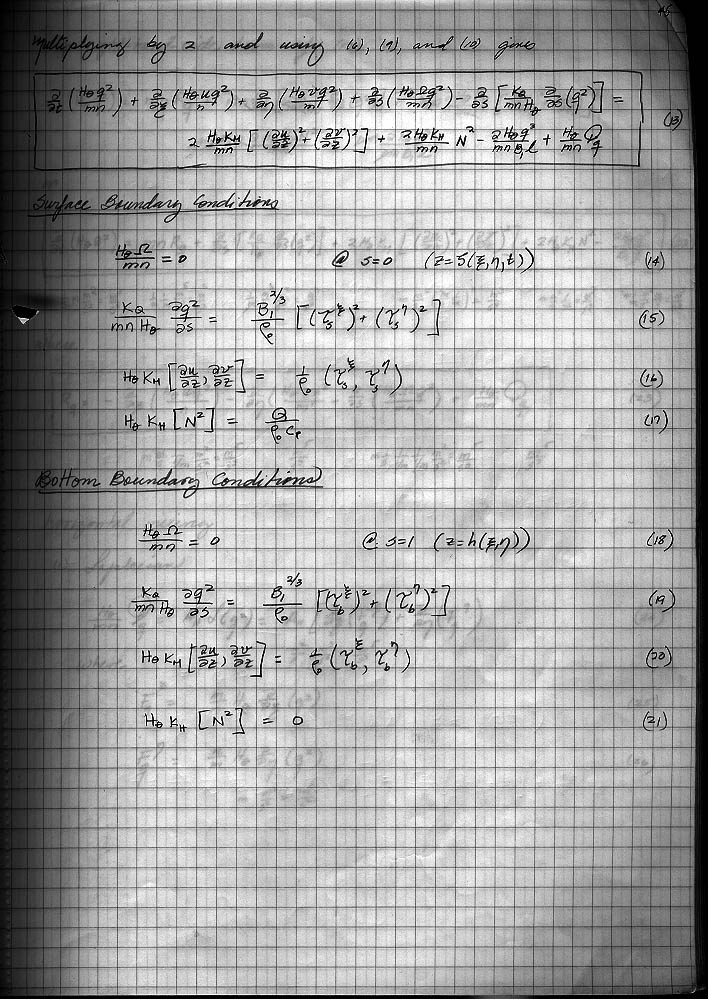 45
Multiplying by 2 and using (6), (9), and (10) gives
∂/∂t (Hθ q²/mn) + ∂/∂ξ (Hθ u q²/n) + ∂/∂η (Hθ v q²/m) + ∂/∂s (Hθ Ω q²/mn) - ∂/∂s [KQ/(mn Hθ) ∂/∂s (q²)] =
2 Hθ KM/mn [(∂u/∂z)² + (∂v/∂z)²] + 2 Hθ KH/mn N² - 2 Hθ q³/(mn B₁ l) + Hθ/mn Qq (13)
Surface Boundary Conditions
Hθ Ω/mn = 0 @ s=0 (z=ζ(ξ,η,t)) (14)
KQ/(mn Hθ) ∂q²/∂s = B₁^(2/3)/ρ₀ [(τs^ξ)² + (τs^η)²] (15)
Hθ KM [∂u/∂z, ∂v/∂z] = 1/ρ₀ (τs^ξ, τs^η) (16)
Hθ KH [N²] = Q/(ρ₀ cp) (17)
Bottom Boundary Conditions
Hθ Ω/mn = 0 @ s=1 (z=h(ξ,η)) (18)
KQ/(mn Hθ) ∂q²/∂s = B₁^(2/3)/ρ₀ [(τb^ξ)² + (τb^η)²] (19)
Hθ KM [∂u/∂z, ∂v/∂z] = 1/ρ₀ (τb^ξ, τb^η) (20)
Hθ KH [N²] = 0 (21)